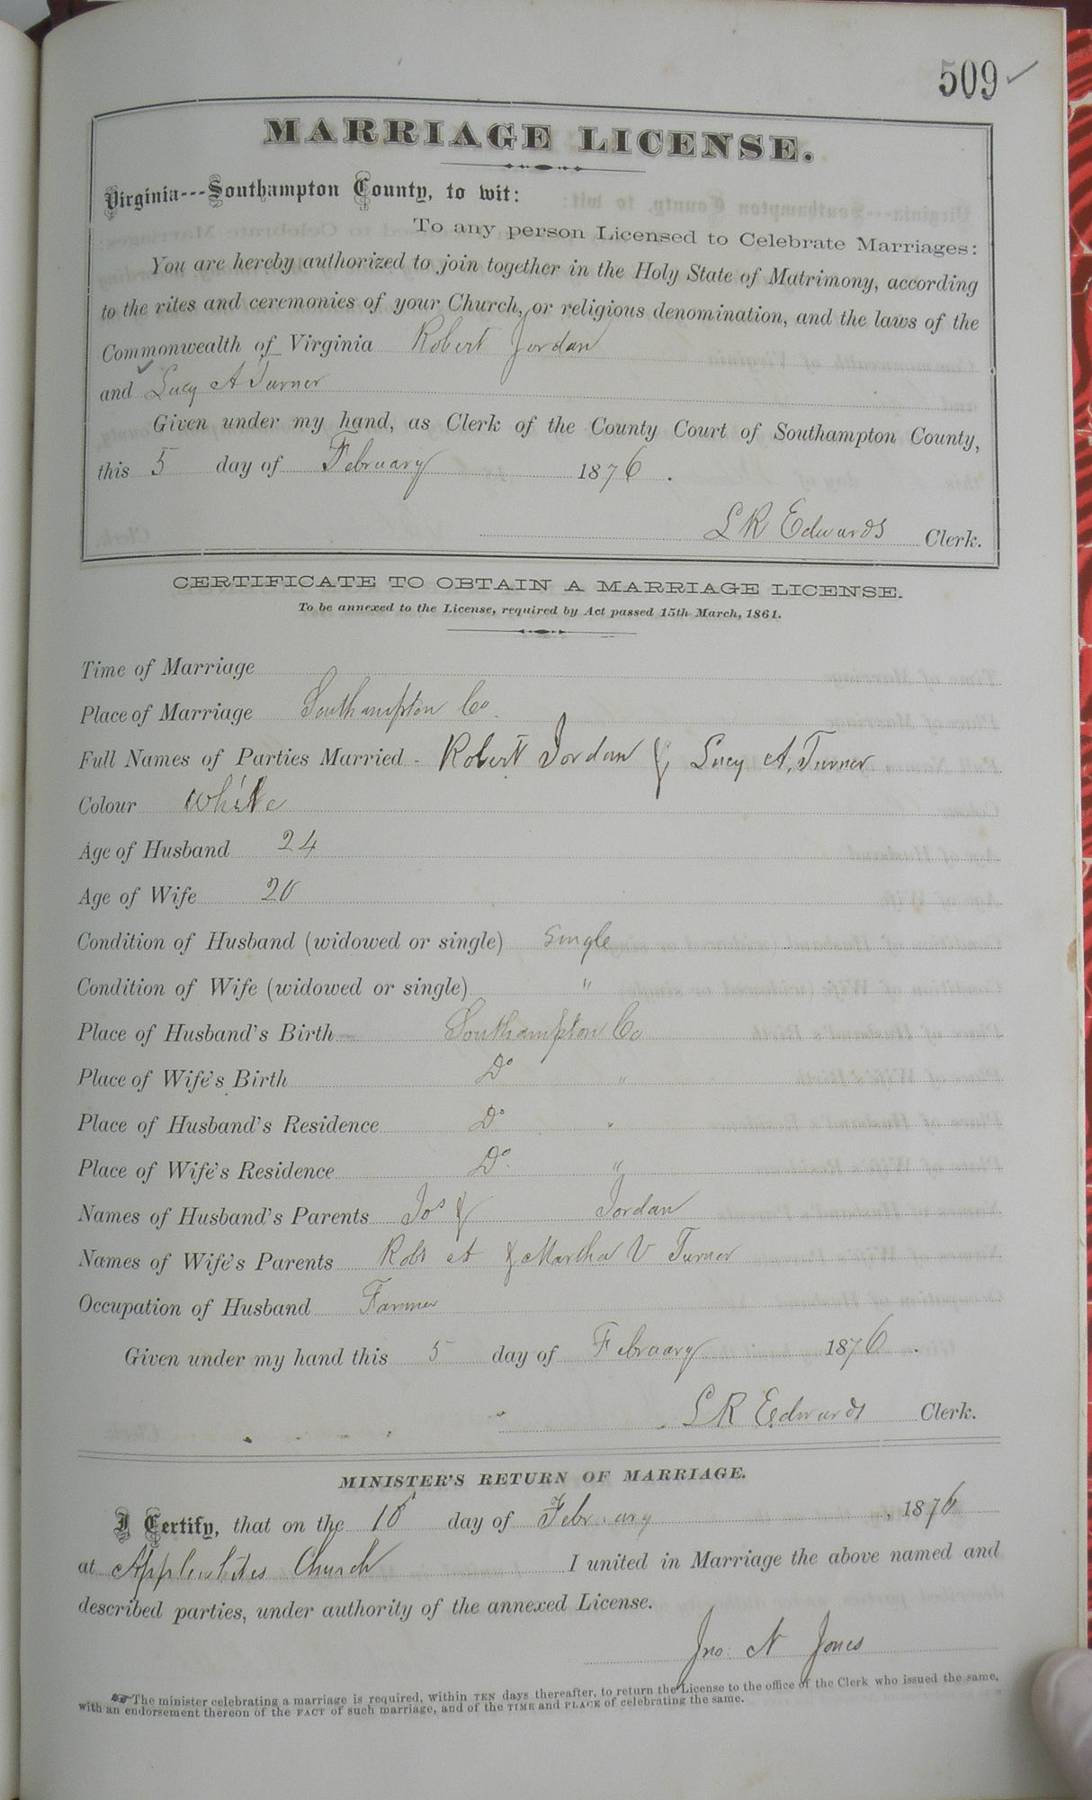 509 ✓
MARRIAGE LICENSE.
Virginia---Southampton County, to wit:
To any person Licensed to Celebrate Marriages:
You are hereby authorized to join together in the Holy State of Matrimony, according
to the rites and ceremonies of your Church, or religious denomination, and the laws of the
Commonwealth of Virginia Robert Jordan
and Lucy A Turner
Given under my hand, as Clerk of the County Court of Southampton County,
this 5 day of February 1876.
L R Edwards Clerk.
CERTIFICATE TO OBTAIN A MARRIAGE LICENSE.
To be annexed to the License, required by Act passed 15th March, 1861.
Time of Marriage
Place of Marriage Southampton Co.
Full Names of Parties Married Robert Jordan & Lucy A. Turner
Colour White
Age of Husband 24
Age of Wife 20
Condition of Husband (widowed or single) Single
Condition of Wife (widowed or single) "
Place of Husband's Birth Southampton Co
Place of Wife's Birth Do "
Place of Husband's Residence Do "
Place of Wife's Residence Do "
Names of Husband's Parents Jos & Jordan
Names of Wife's Parents Robt A & Martha V Turner
Occupation of Husband Farmer
Given under my hand this 5 day of February 1876.
L R Edwards Clerk.
MINISTER'S RETURN OF MARRIAGE.
I Certify, that on the day of February, 1876
at Church I united in Marriage the above named and
described parties, under authority of the annexed License.
Jno. N Jones
The minister celebrating a marriage is required, within TEN days thereafter, to return the License to the office of the Clerk who issued the same,
with an endorsement thereon of the FACT of such marriage, and of the TIME and PLACE of celebrating the same.